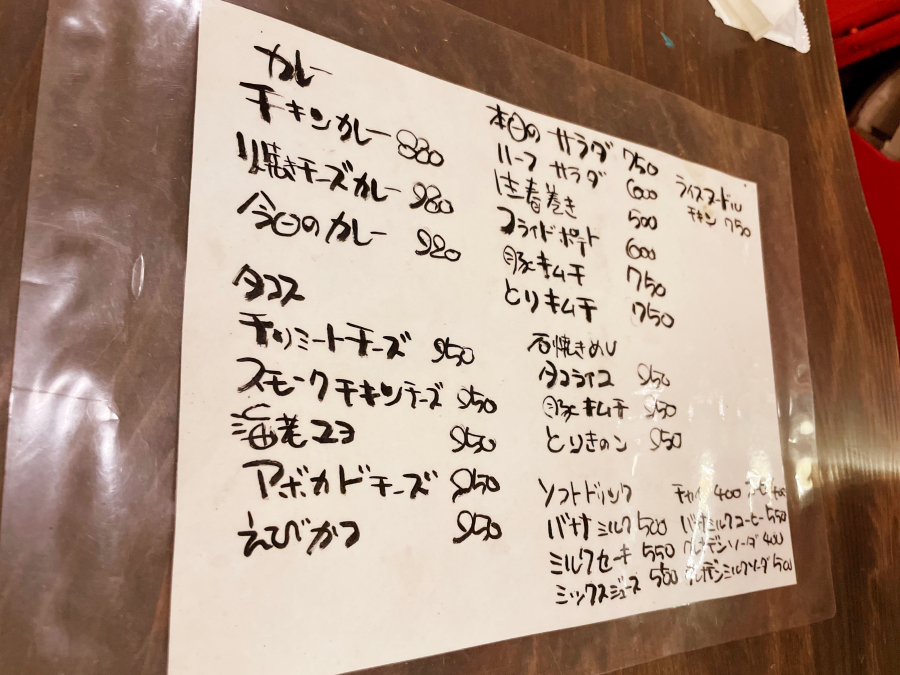 カレー
チキンカレー 880
焼きチーズカレー 980
今日のカレー 920
タコス
チリミートチーズ 950
スモークチキンチーズ 950
海老マヨ 950
アボカドチーズ 950
えびかつ 950
本日のサラダ 750
ハーフ サラダ 600
生春巻き 500
フライドポテト 600
豚キムチ 750
とりキムチ 750
石焼きめし
タコライス 950
豚キムチ 950
とりきのこ 950
ライスヌードル
チキン 750
ソフトドリンク
バナナミルク 500
ミルクセーキ 550
ミックスジュース 550
チャイ 400 コーヒー 400
バナナミルクコーヒー 550
グレナデンソーダ 400
グレナデンミルクソーダ 500